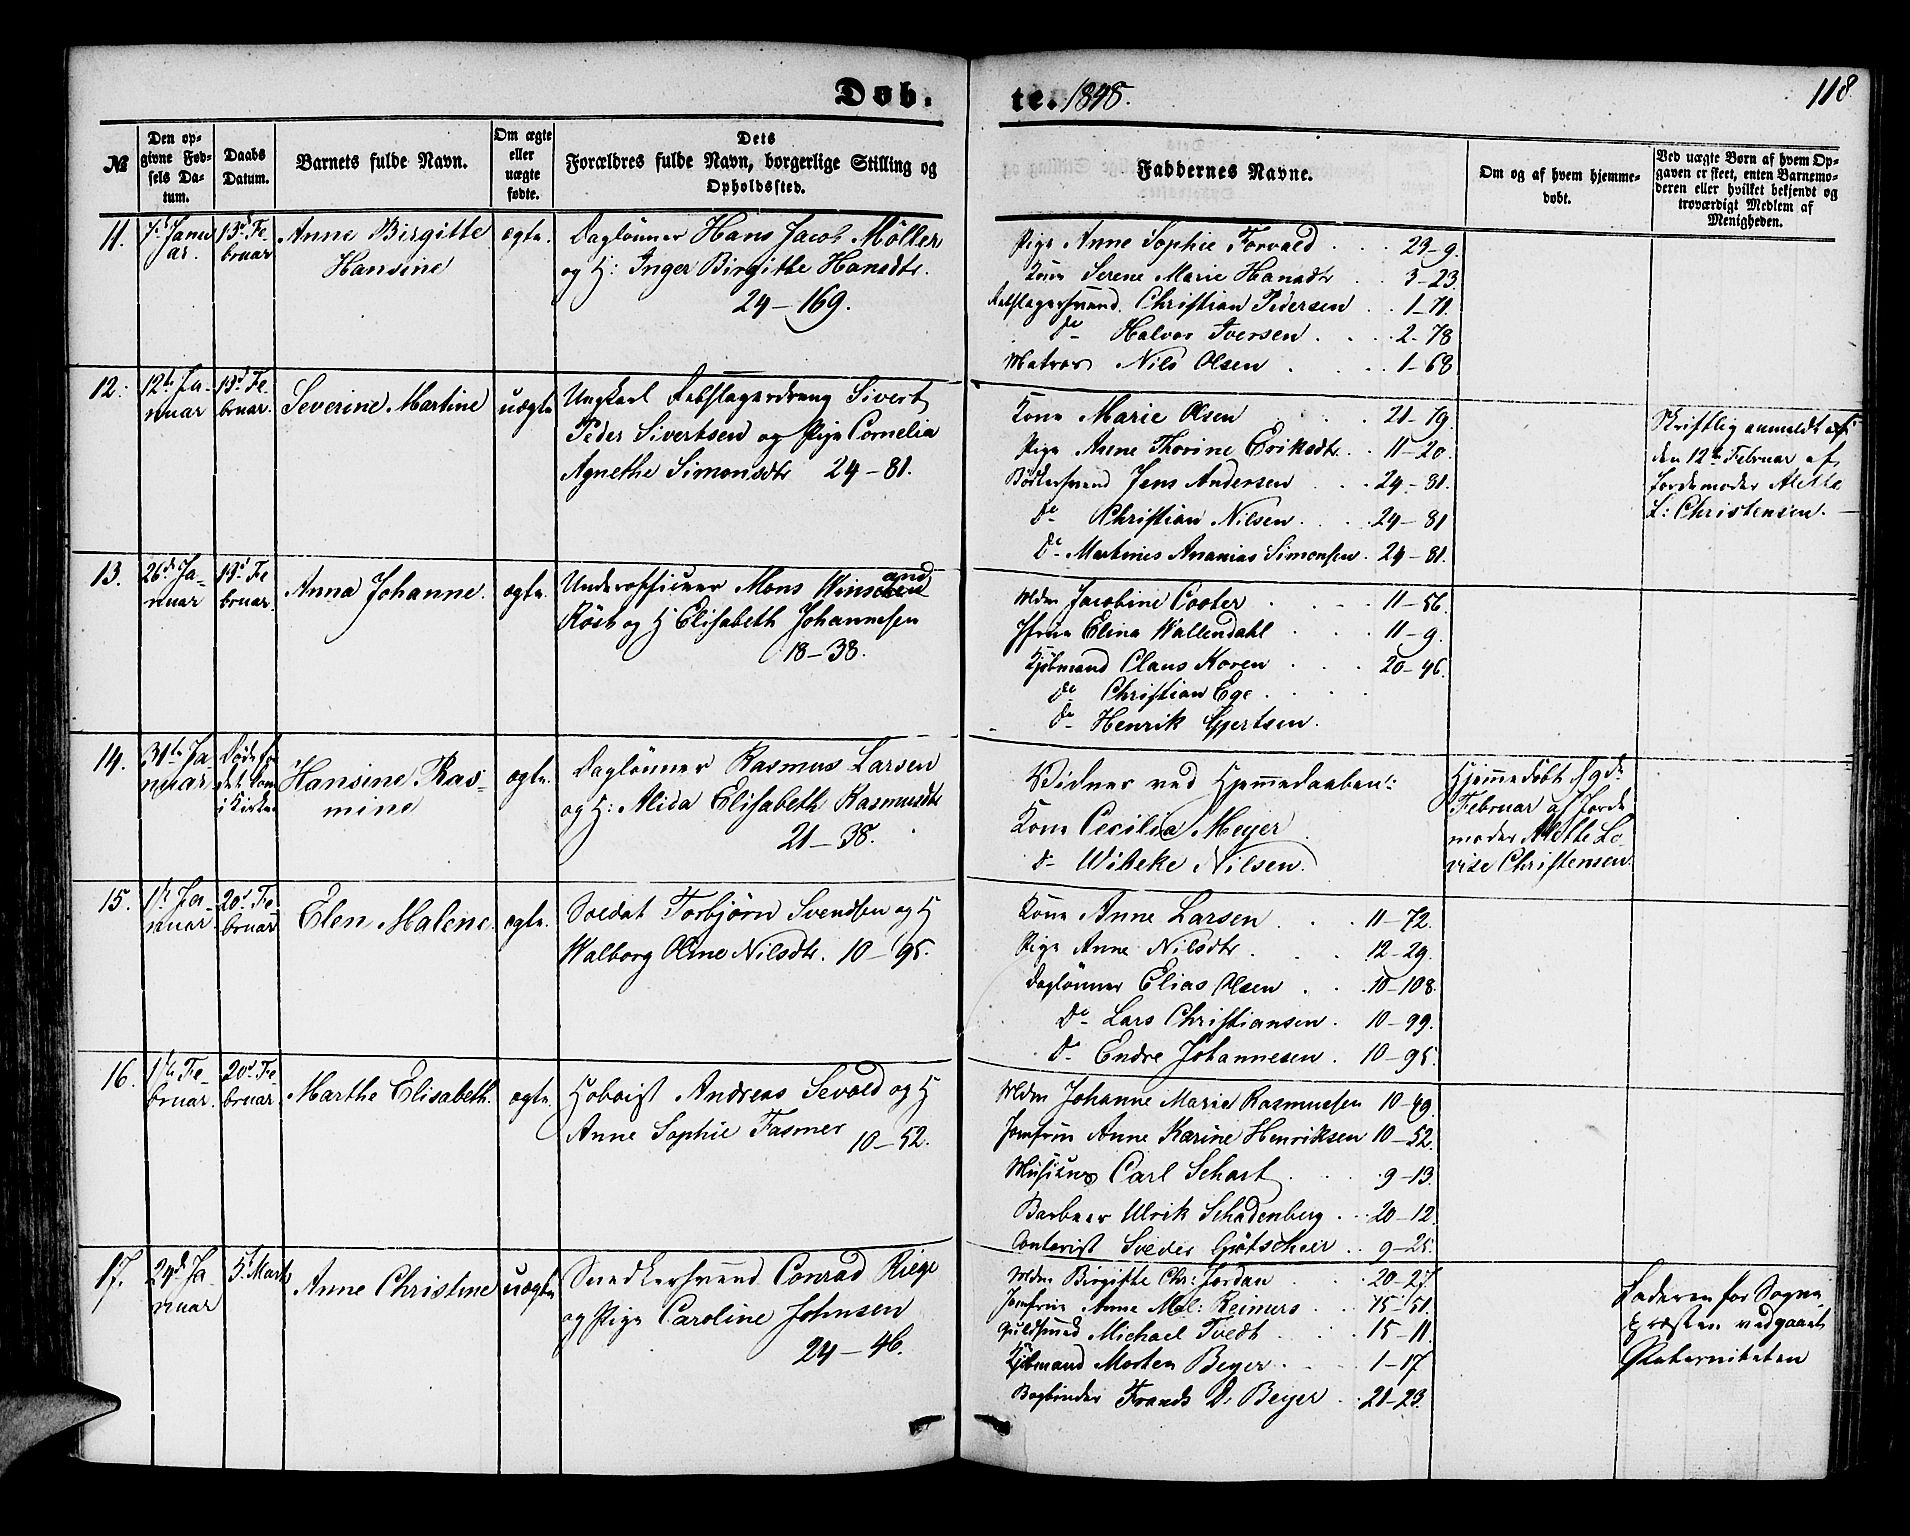 Døb.
te. 1848.
118
№
Den op-
givne Fød-
sels Da-
tum.
Daabs
Datum.
Barnets fulde Navn.
Om ægte
eller
uægte
fødte.
Dets
Forældres fulde Navn, borgerlige Stilling og
Opholdssted.
Faddernes Navne.
Om og af hvem hjemme-
døbt.
Ved uægte Børn af hvem Op-
gaven er skeet, enten Barnemo-
deren eller hvilket bekjendt og
troværdigt Medlem af
Menigheden.
11.
7d Janu
ar.
13d Fe
bruar
Anne Birgitte
Hansine
ægte.
Daglønner Hans Jacob Möller
og H: Inger Birgitte Hansdtr.
24-169.
Pige Anne Sophie Forvald . . . 23-9.
Kone Serene Marie Hansdtr . . 3-23.
Rebslagersvend Christian Pedersen . . 1-71.
do Halvor Iversen . . . 2-78
Matros Nils Olsen . . . 1-68
12.
12te Ja-
nuar
13d Fe
bruar.
Severine Martine
uægte
Ungkarl Rebslagerdreng Sivert
Peder Sivertsen og Pige Cornelia
Agnethe Simonsdtr 24-81.
Kone Marie Olsen . . . 21-79.
Pige Anne Thorine Eriksdtr . . 11-20.
Bødkersvend Jens Andersen . . 24-81.
do Christian Nilsen . . . 24-81
do Martinus Ananias Simonsen . 24-81.
Skriftlig anmeldt
den 12te Februar af
Jordemoder Alette
L: Christensen.
13.
26d Ja-
nuar
13d Fe
bruar.
Anna Johanne.
ægte.
Underofficeer Mons
Røsb og H Elisabeth Johannesen
18-38.
Mdm Jacobine Cooter . . . 11-56.
Jfrue Elina Wallendahl . . . 11-9.
Kjøbmand Claus Koren . . . 20-46.
do Christian Ege . . .
do Henrik Gjertsen.
14.
31te Ja
nuar
Døde før
det kom
i Kirken
Hansine Ras-
mine
ægte.
Daglønner Rasmus Larsen
og H: Alida Elisabeth Rasmusdtr
21-38.
Vidner ved Hjemmedaaben:
Kone Cecilia Meyer
do Wibeke Nilsen
Hjemmedøbt d 9de
Februar af Jorde
moder Alette Lo
vise Christensen.
15.
1ste Ja-
nuar.
20d Fe
bruar
Elen Malene.
ægte.
Soldat Torbjörn Svendsen og H
Walborg Olene Nilsdtr. 10-95.
Kone Anne Larsen . . . 11-72.
Pige Anne Nilsdtr . . . 12-29.
Daglønner Elias Olsen . . . 10-108.
do Lars Christiansen . 10-99.
do Endre Johannesen . 10-95.
16.
1ste Fe-
bruar.
20d Fe-
bruar.
Marthe Elisabeth.
ægte.
Hoboist Andreas Sevald og H
Anne Sophie Fasmer 10-52.
Mdm Johanne Marie Rasmussen 10-49.
Jomfrue Anne Karine Henriksen 10-52.
Musicus Carl Schart . . . 9-13.
Barbeer Ulrik Schadenberg . . 20-12.
Contorist Sveder Götscheer . . 9-25.
17.
24d Ja-
nuar
5te Marts
Anne Christine
uægte
Snedkersvend Conrad Riege
og Pige Caroline Johnsen
24-46.
Mdm Birgitte Chr: Jordan . 20-27.
Jomfrue Anne Mal: Reimers . . 15-51.
Guldsmed Michael Tvedt . . . 15-11.
Kjøbmand Morten Beyer . . . 1-17
Bogbinder Frands D. Beyer . 21-23.
Faderen for Sogne
præsten vedgaaet
Paterniteten